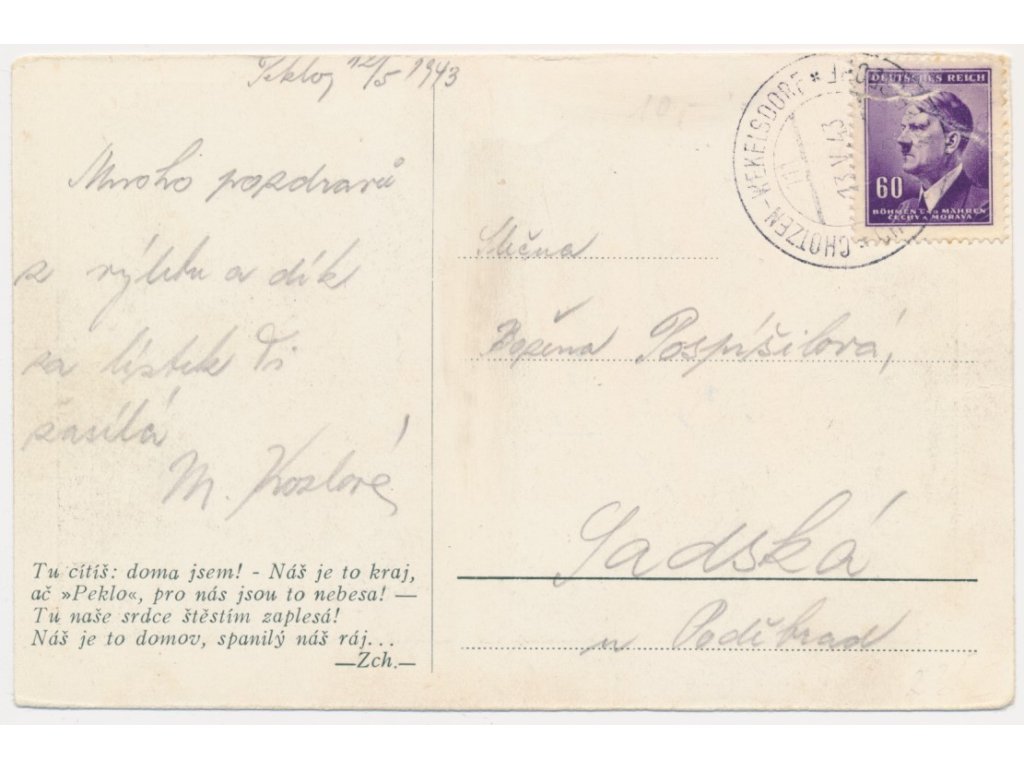 Peklo, 12/5 1943
Mnoho pozdravů
z výletu a dík
za lístek Ti
zasílá
M. Kozlová
Tu cítíš: doma jsem! - Náš je to kraj,
ač »Peklo«, pro nás jsou to nebesa! —
Tu naše srdce štěstím zaplesá!
Náš je to domov, spanilý náš ráj...
—Zch.—
10,-
CHOTZEN-WEKELSDORF *
13.V.43
DEUTSCHES REICH
60
BÖHMEN U. MÄHREN
ČECHY A MORAVA
Slečna
Božena Pospíšilová,
Sadská
u Poděbrad